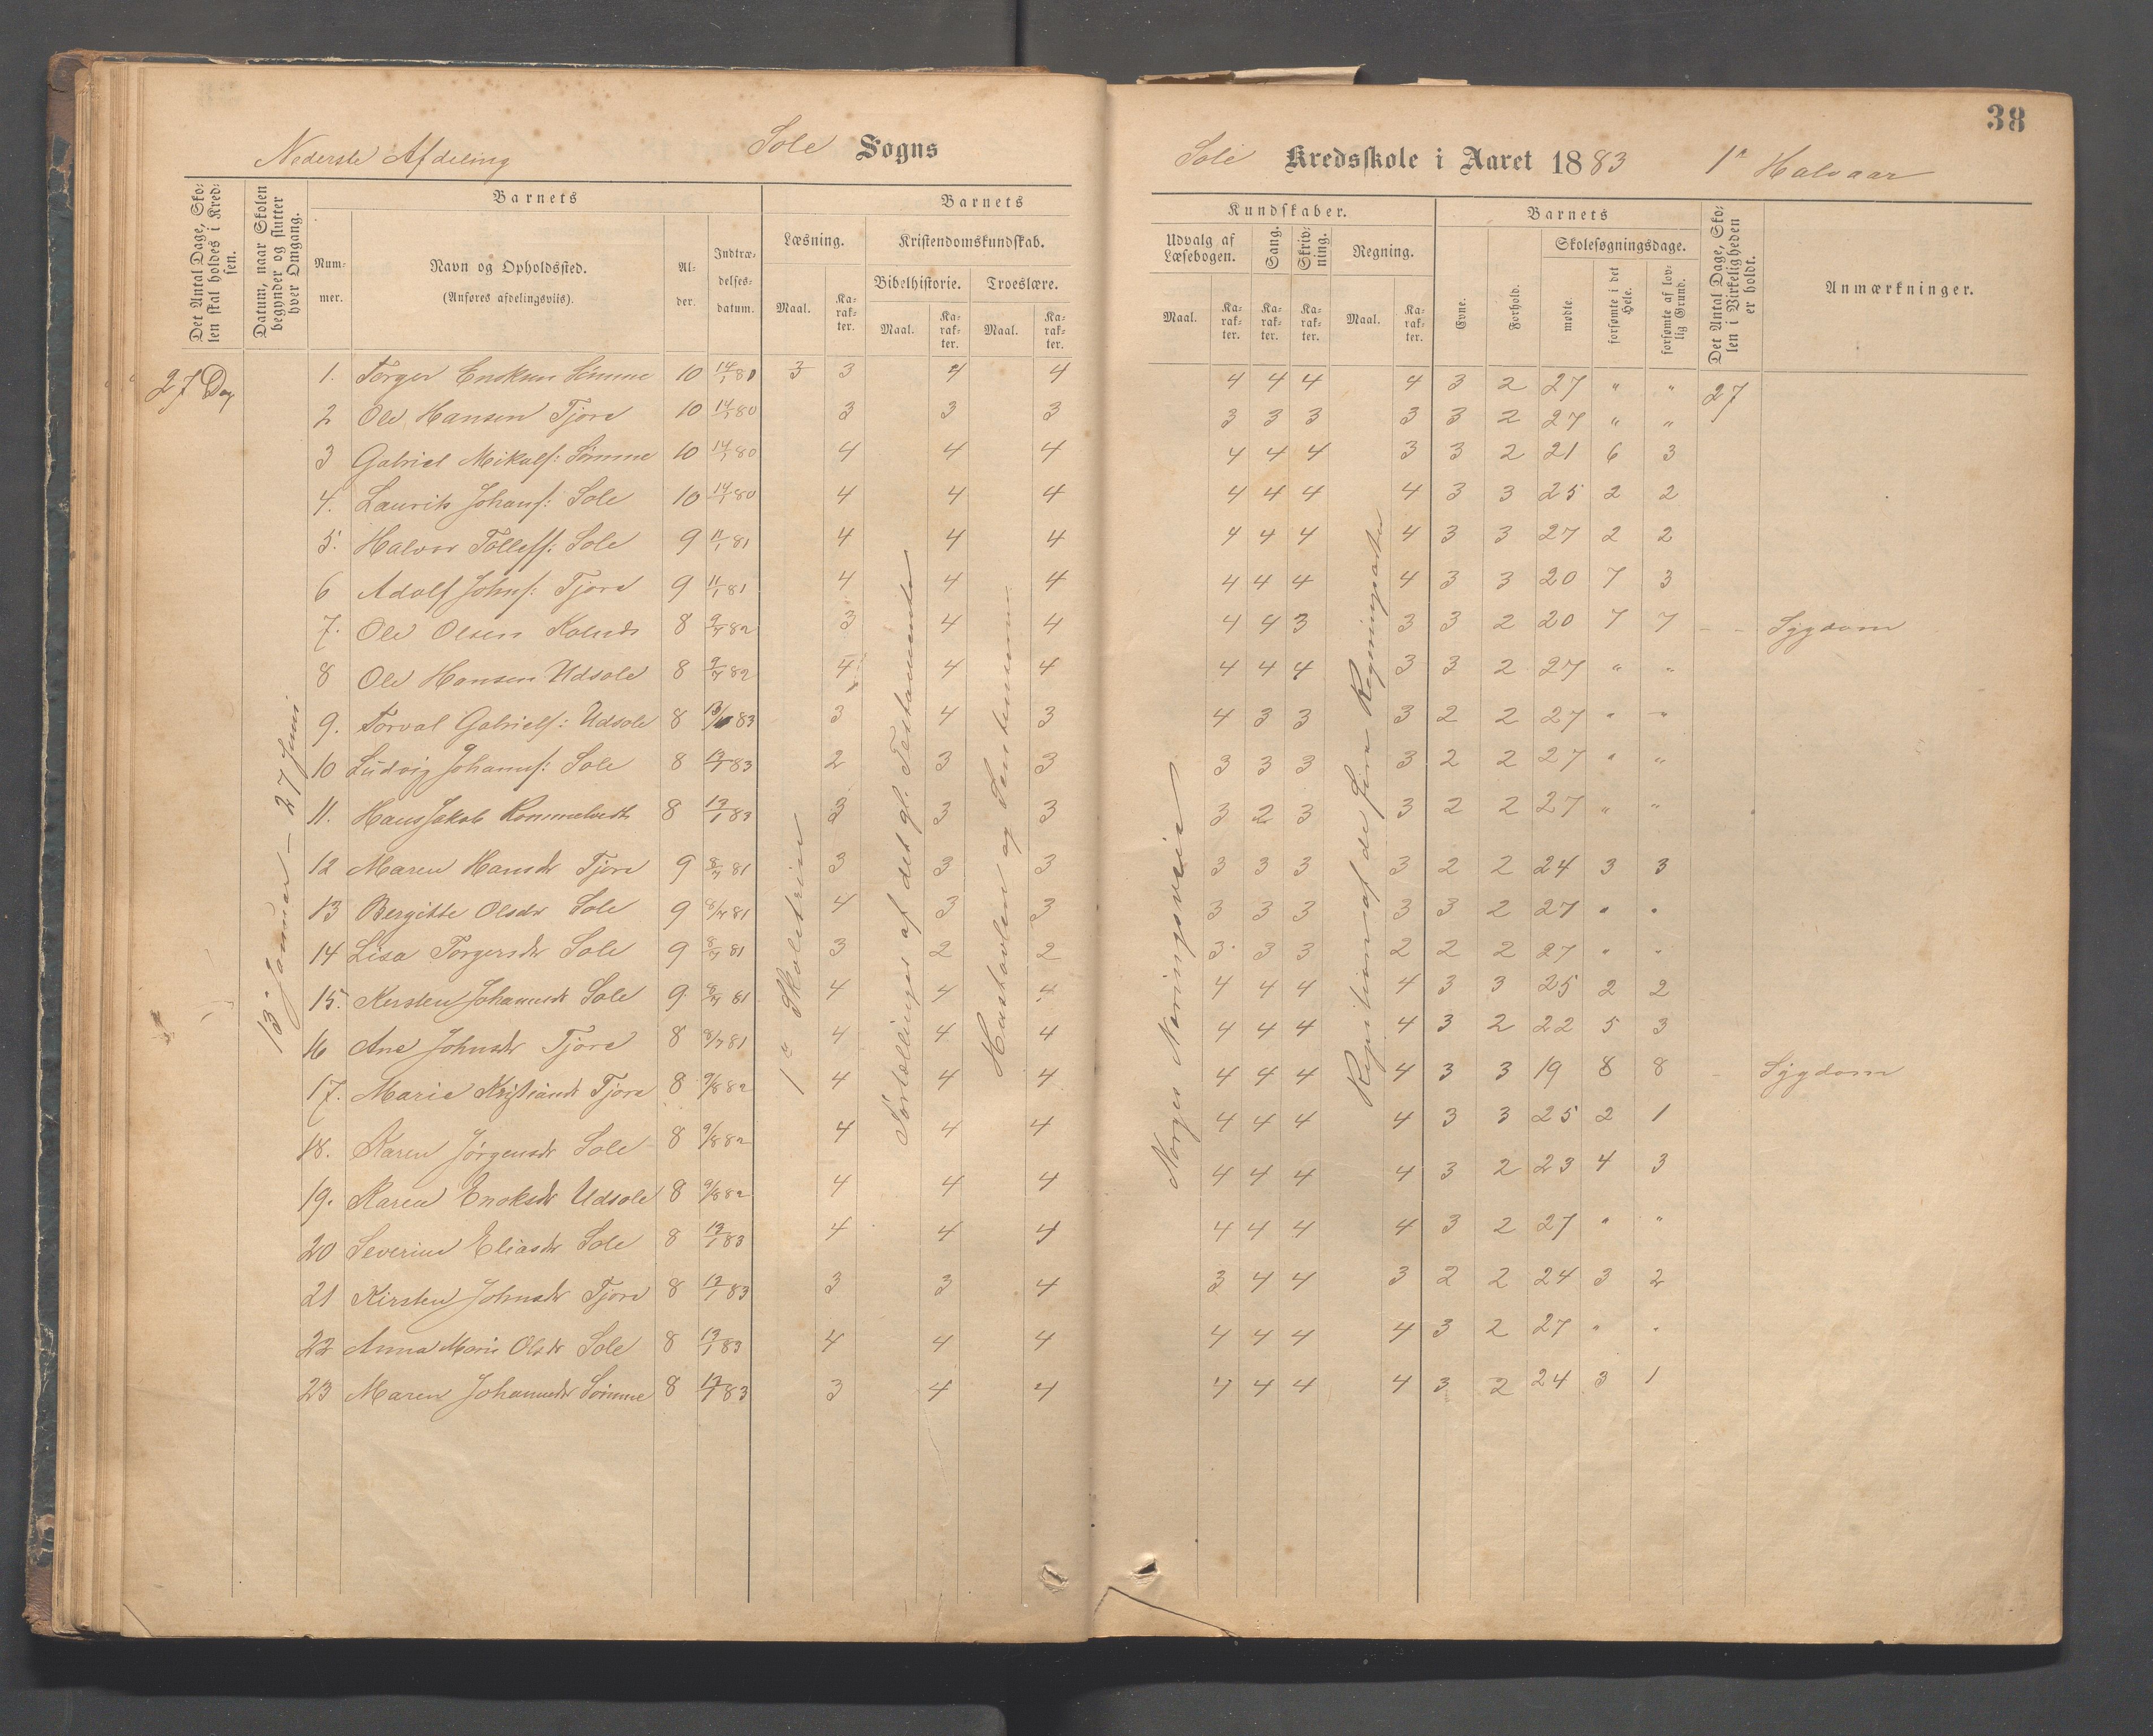 38
Nederste Afdeling Sole Sogns
Sole Kredsskole i Aaret 1883 1ste Halvaar
Det Antal Dage, Skolen skal holdes i Kredsen.
Datum, naar Skolen begynder og slutter hver Omgang.
Barnets
Nummer.
Navn og Opholdssted.
(Anføres afdelingsviis).
Alder.
Indtrædelsesdatum.
Barnets
Læsning. Kristendomskundskab.
Bibelhistorie. Troeslære.
Maal. Karakter. Maal. Karakter. Maal. Karakter.
Kundskaber.
Udvalg af Læsebogen. Sang. Skrivning. Regning.
Maal. Karakter. Karakter. Karakter. Maal. Karakter.
Barnets
Evne. Forhold. Skolesøgningsdage.
mødte. forsømte i det Hele. forsømte af lovlig Grund.
Det Antal Dage, Skolen i Virkeligheden er holdt.
Anmærkninger.
27 Dag
13. Januar – 27 Juni
1. Torger Sømme 10 14/1 80 3 3 4 4 4 4 4 4 3 2 27 " " 27
2 Ole Hansen Tjora 10 14/1 80 3 3 3 3 3 3 3 3 2 27 " "
3 Gabriel Mikals: Sømme 10 14/1 80 4 4 4 4 4 4 3 3 2 21 6 3
4. Laurits Johans: Sole 10 14/1 80 4 4 4 4 4 4 4 3 3 25 2 2
5. Halvor Tollefs: Sole 9 11/1 81 4 4 4 4 4 4 4 3 3 27 2 2
6 Adolf Johns: Tjora 9 11/1 81 4 4 4 4 4 4 4 3 3 20 7 3
7. Ole Olsen 8 3 4 4 4 4 3 3 3 2 20 7 7 – – Sygdom
8 Ole Hansen Udsole 8 4 4 4 4 4 4 3 3 2 27 " "
9. Torval Gabriels: Udsole 8 3 4 3 4 3 3 3 2 2 27 " "
10 Ludvig Johanns: Sole 8 2 3 3 3 3 3 3 2 2 27 " "
11. Hans Jakob 8 3 3 3 3 2 3 3 2 2 27 " "
12 Maren Hansdr Tjora 9 3 3 3 3 3 3 3 2 2 24 3 3
13 Bergitte Olsdr Sole 9 4 3 3 3 3 3 3 3 2 27 " "
14 Lisa Torgersdr Sole 9 3 2 2 3 3 3 2 2 2 27 " "
15. Kersten Johannsdr Sole 9 4 4 4 4 4 4 4 3 3 25 2 2
16 Ane Johnsdr Tjora 8 4 4 4 4 4 4 4 3 2 22 5 3
17. Marie Kristiansdr Tjora 8 4 4 4 4 4 4 4 3 3 19 8 8 – Sygdom
18. Karen Jørgensdr Sole 8 4 4 4 4 4 4 4 3 3 25 2 1
19. Karen Enoksdr Udsole 8 4 4 4 4 4 4 4 3 2 23 4 3
20 Severine Eliasdr Sole 8 4 4 4 4 4 4 4 3 2 27 " "
21 Kirsten Johnsdr Tjora 8 3 3 4 3 4 4 3 2 2 24 3 2
22 Anna Marie Olsdr Sole 8 4 4 4 4 4 4 4 3 2 27 " "
23 Maren Johannsdr Sømme 8 3 4 4 4 4 4 4 3 2 24 3 1
1ste Skoletrin
Fortællinger af det gl. Testamente
Hustavlen og
Norges Næringsveie
Repitition af de fire Regningsarter